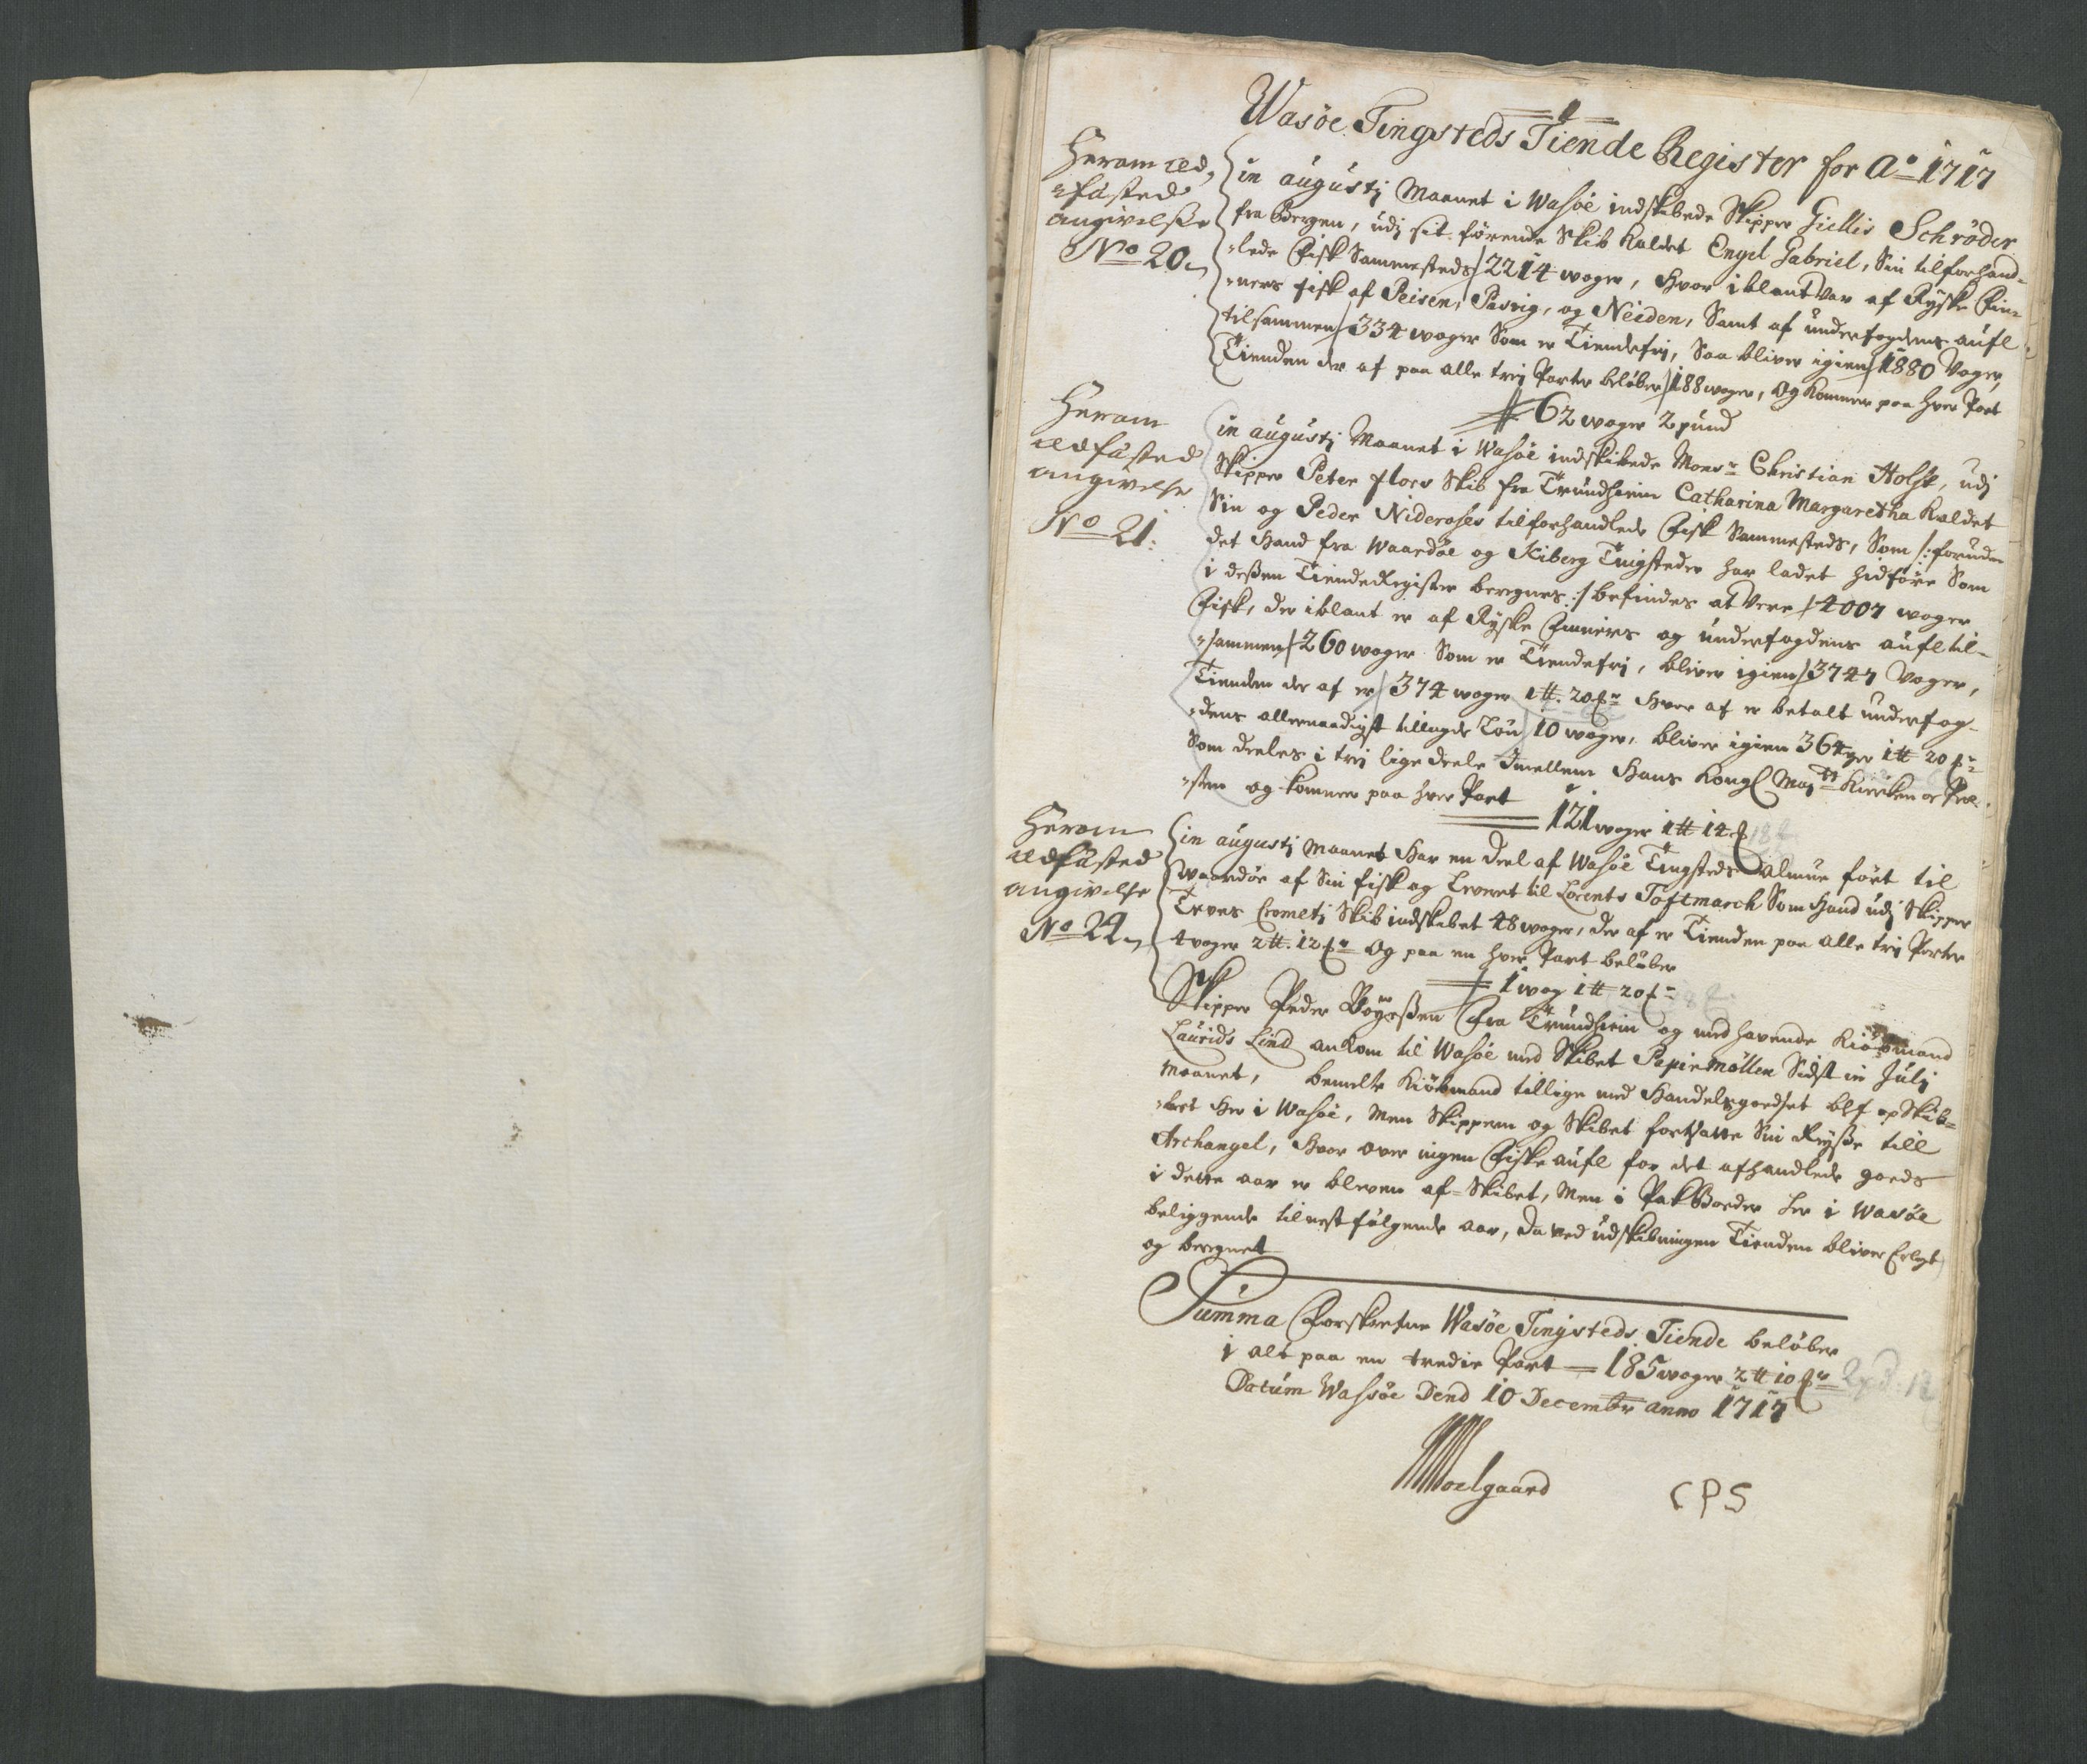 1
Wasöe Tingsteds Tiende Register for Ao 1717
Herom ved=
=fæsted
angivelsse
No 20
in augustj Maanet i Wasöe indskibede Skipper Giellis Schröder
fra Bergen, udj sit förende Skib kaldet Engel Gabriel, Sin tilforhand=
=lede Fisk Sammesteds 2214 woger, hvor iblant var af Ryske Fin=
=ners fisk af Peisen, Pasvig, og Neiden, Samt af underfogdens aufl
tilsammen 334 woger Som er Tiendefrj, Saa bliver igien 1880 Voger,
Tienden der af paa alle trej Parter belöber 188 woger, og kommer paa hver Part
62 woger 2 pund
Herom
vedfæsted
angivelse
No 21:
in augustj Maanet i Wasöe indskibede Monsr Christian Holst, udj
Skipper Peter Floer Skib fra Trundheim Catharina Margaretha kaldet
Sin og Peder Nideroses tilforhandlede Fisk Sammesteds, Som /: foruden
det Hand fra Waardöe og Kiberg Tingsteder har ladet hidföre Som
i deßen Tiende Register beregnes :/ befindes at vere 4007 woger
Fisk, der iblant er af Ryske Finners og underfogdens aufl til=
=sammen 260 woger Som er Tiendefrj, bliver igien 3747 Voger,
Tienden der af er 374 woger 1 ℔. 20 ho hvor af er betalt underfog=
=dens allernaadigst tillagde Lön 10 woger, bliver igien 364 woger 1 ℔ 20
Som deeles i trej lige deele Imellem Hans Kongl Mayts Kirken og Præ=
=sten og kommer paa hver Part
121 woger 1 ℔ 14
Herom
vedfæsted
angivelse
No 22
in augustj Maanet Har en deel af Wasöe Tingsteds Almue fört til
Waardöe af Sin fisk og Leveret til Lorents Toftmarch Som Hand udj Skipper
Teves Crometj Skib indskibet 48 woger, der af er Tienden paa alle trej Parter
4 woger 2 ℔. 12 Og paa en hver Part belöber
1 wog 1 ℔ 20
Skipper Peder Böyeßen Fra Trundheim og med havende Kiöbmand
Laurids Lind ankom til Wasöe med Skibet Papiermöllen Sidst in Julj
Maanet, bemelte Kiöbmand tillige med Handels goedset blef op Skib=
=bet Her i Wasöe, Men Skipperen og Skibet fortsatte Sin Reyße till
Archangel, Hvor over ingen Fiske aufl for det afhandlede goeds
i dette aar er bleven af=Skibet, Men i Pak Boeder her i Wasöe
beliggende til nest fölgende aar, da ved udskibningen Tienden bliver Erlagt
og beregnet
Summa Forskrefne Wasöe Tingsteds Tiende belöber
i alt paa en tredie Part 185 woger 2 ℔ 10
Datum Wasöe Dend 10 Decembr anno 1717
Moelgaard
CPS